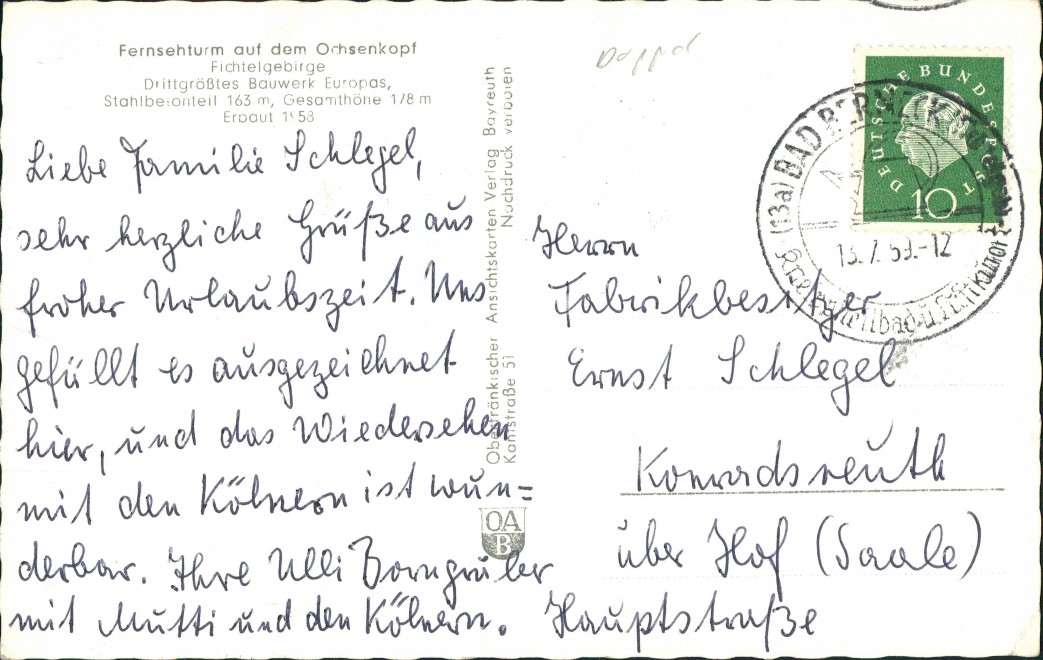 Fernsehturm auf dem Ochsenkopf
Fichtelgebirge
Drittgrößtes Bauwerk Europas,
Stahlbetonteil 163 m, Gesamthöhe 178 m
Erbaut 1958
Liebe Familie Schlegel,
sehr herzliche Grüße aus
froher Urlaubszeit. Uns
gefüllt es ausgezeichnet
hier, und das Wiedersehen
mit den Kölnern ist wun=
derbar. Ihre Ulli Borngruber
mit Mutti und den Kölnern.
Oberfränkischer Ansichtskarten Verlag Bayreuth
Kanistraße 51 Nachdruck verboten
OA
B
Doppel
DEUTSCHE BUNDESPOST
10
(13a) BAD BERNECK
13.7.59.-12
Kneippheilbad u. Luftkurort
Herrn
Fabrikbesitzer
Ernst Schlegel
Konradsreuth
über Hof (Saale)
Hauptstraße